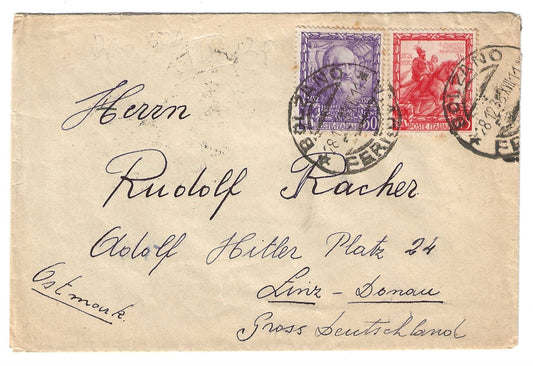 BOLZANO
FERROVIA
BOLZANO
50
POSTE ITALIANE
Herrn
Rudolf Racher
Adolf Hitler Platz 24
Ostmark
Linz - Donau
Gross Deutschland